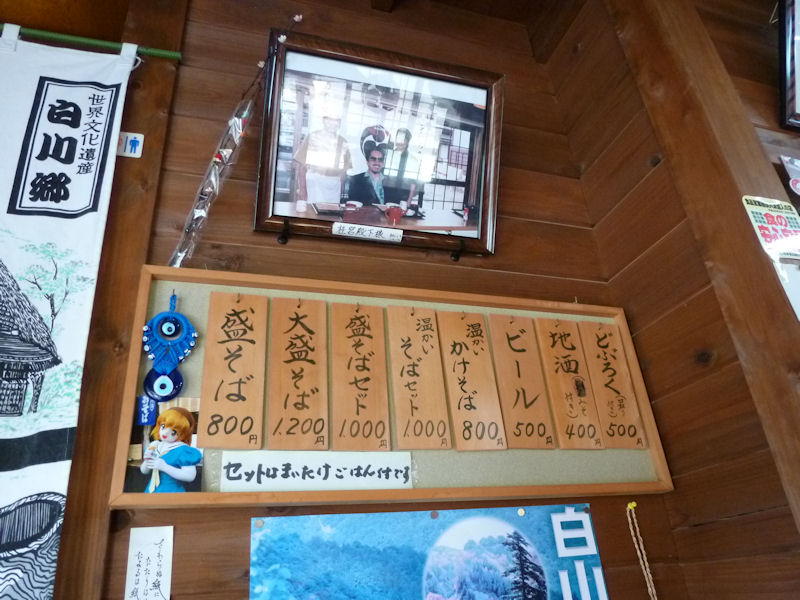 世界文化遺産
白川郷
桂宮殿下様
盛そば
800円
大盛そば
1.200円
盛そばセット
1.000円
温かい
そばセット
1.000円
温かい
かけそば
800円
ビール
500円
地酒
400円
どぶろく
500円
セットはまいたけごはん付です
白山